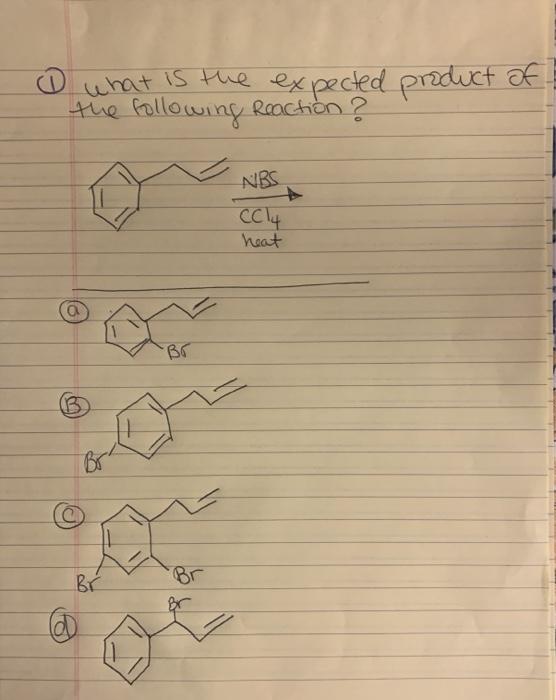 ① what is the expected product of
the following Reaction?
NBS
CCl4
heat
ⓐ
Br
Ⓑ
Br
ⓒ
Br
Br
ⓓ
Br